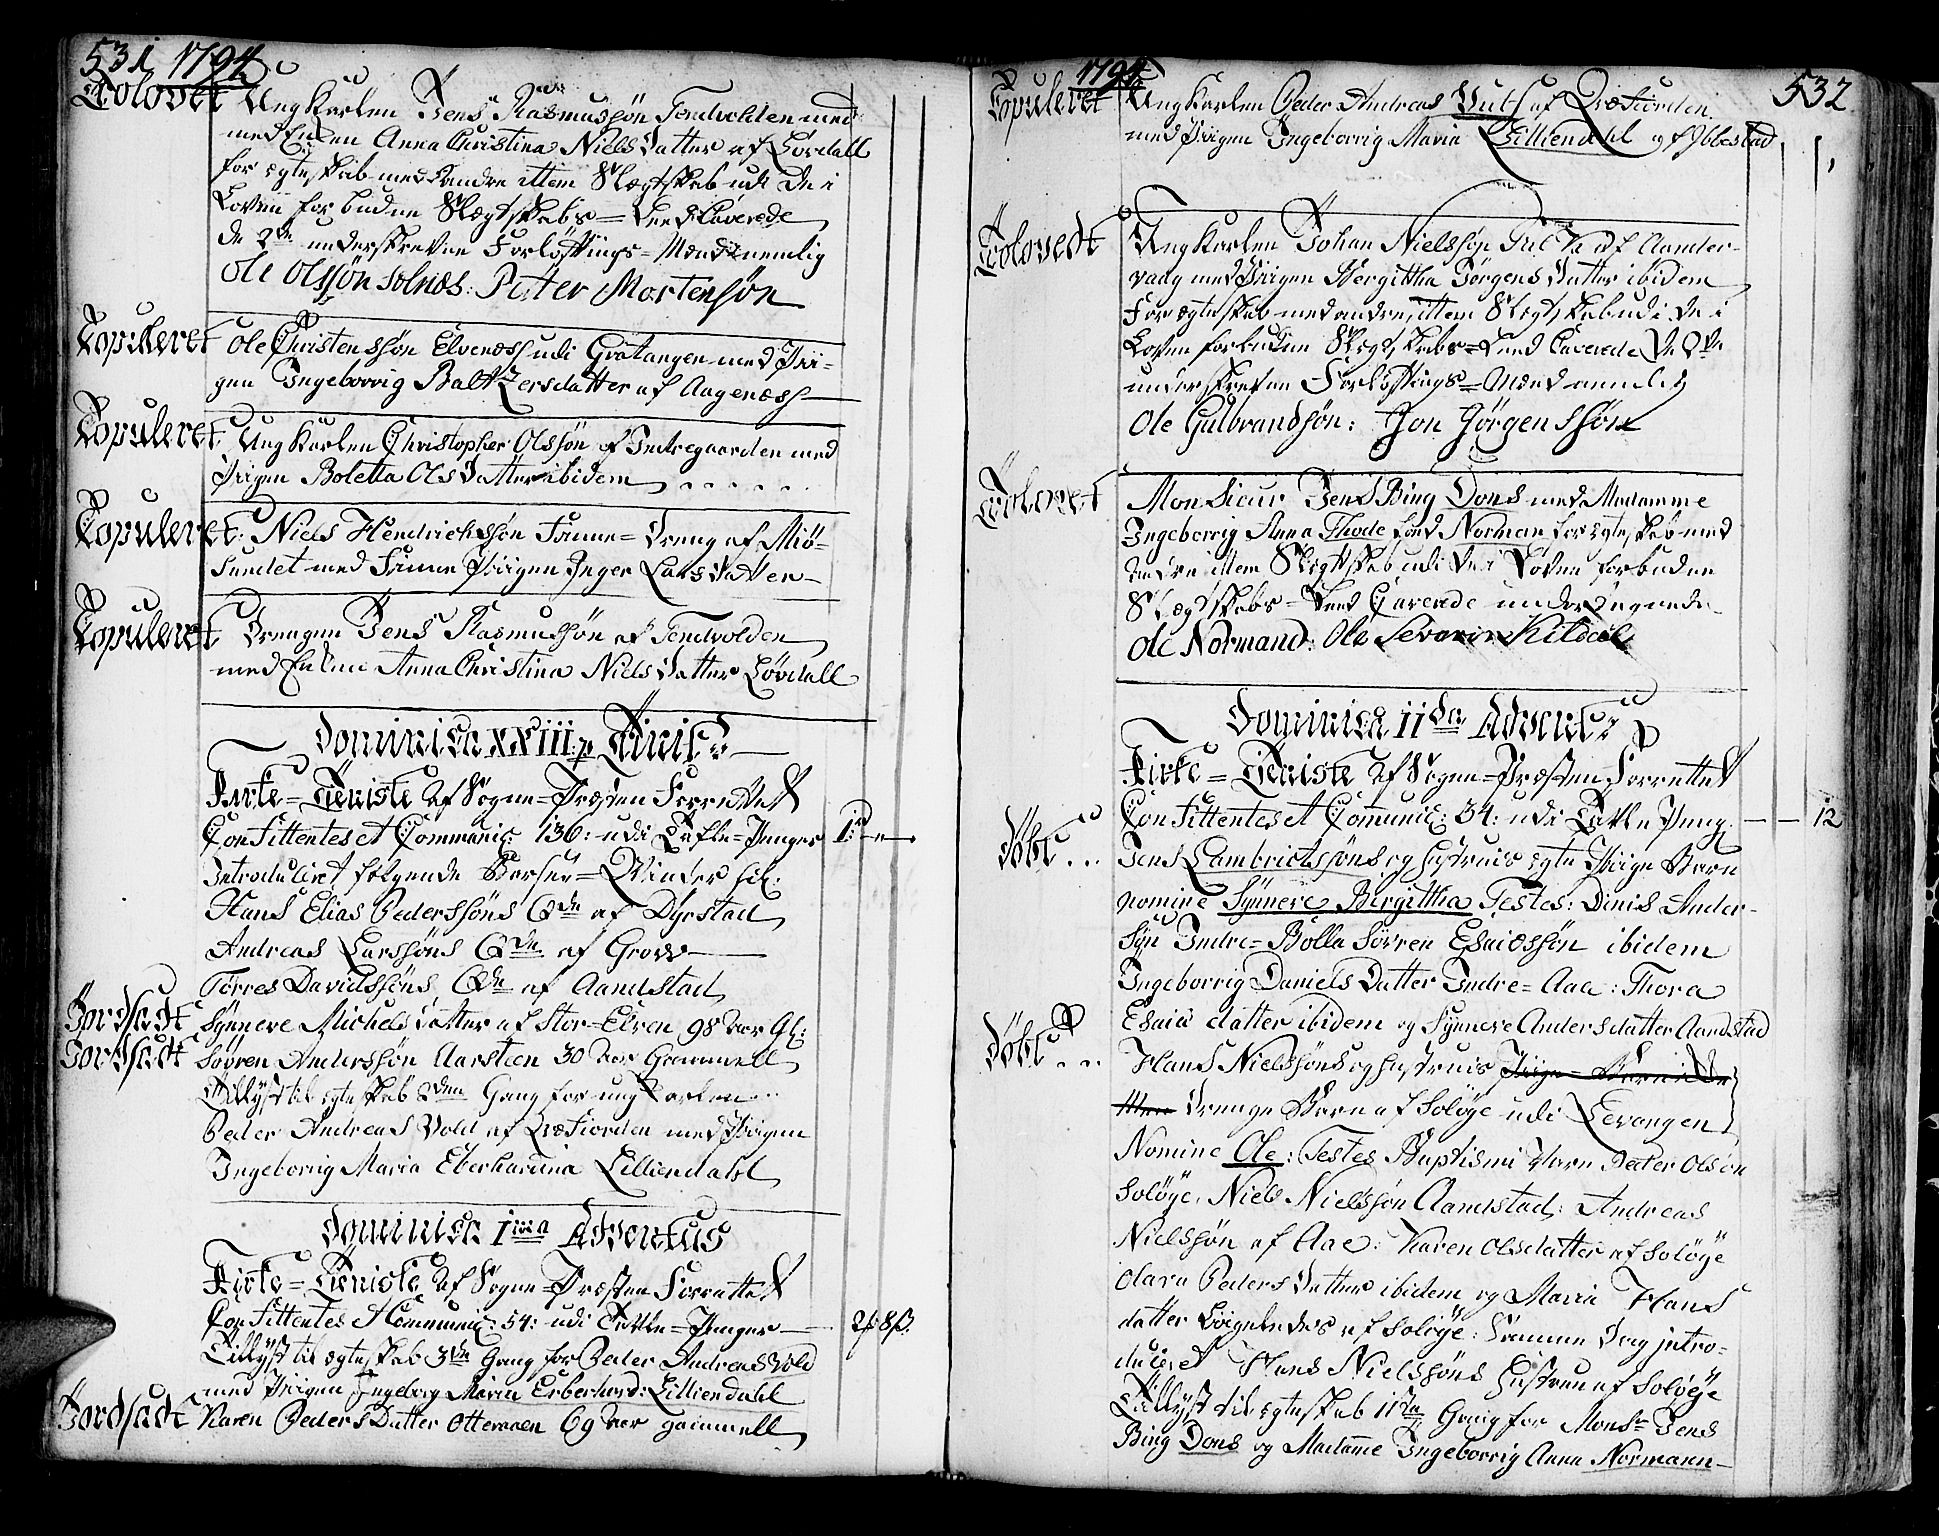 531 1794
Trolovet Ung Karlen Jens Rasmussøn Tendvolden med
med Enken Anna Christina Niels Datter af Lørdall
for ægteskab med hendre ittem Slægtskab udi De i
Loven forbudne Slægtskabs = Leed Caverede
De 2de underskrevne Forløftnings = Mænd nemlig
Ole Olssøn Solnæs: Peter Mortensøn
Copuleret Ole Christenssøn Elvenæss udi Gratangen med Pii-
gen Ingeborrig Baltzersdatter af Aagenæss
Copuleret Ung Karlen Christopher Olssøn af Indregaarden med
Piigen Boletta Ols Datter ibidem
Copuleret: Niels Hendrichssøn Finne = Dreng af Miø-
Sundet med Finne Piigen Inger Lars Datter
Copuleret Drengen Jens Rasmussøn af Tendvolden
med Enken Anna Christina Niels Datter Løvdall
Dominica XXIII p Trinit:
Kirke = Tieniste af Sogne = Præsten Forrettet
Confittentes et Communic: 136: udi Tafle = Penger 1 rd
Introduceret følgende Barsel = Qvinder sil:
Hans Elias Pederssøns Qde af Dyrstad
Andreas Larssøns Qde af Grovv
Torres Davidssøns Qde af Aandstad
Jordfædt Synnere Michels datter af Stor-Elven 98 Aar Gl:
Jordfædt Søvren Anderssøn Aarstien 30 Aar Gammell
Tillyst til ægteskab 2den Gang for ung Karlen
Peder Andreas Vold af Qvæfiorden med Piigen
Ingeborrig Maria Eberhardina Lilliendahl
Dominica Ima Adventus
Kirke = Tieniste af Sogne = Præsten Forrettet
Confittentes et Communic: 54: udi Tafle = Penger 2 8 ß
Tillyst til ægteskab 3die Gang for Peder Andreas Vold
med Piigen Ingeborg Maria Erberhard: Lilliendahl
Jordfædt Karen Peders Datter Otteraaen 69 Aar gammell
1794 532
Copuleret Ung Karlen Peder Andreas af Qvæfiorden
med Piigen Ingeborrig Maria Lilliendahl af Ibbestad
Trolovedt Ung Karlen Johan Nielssøn af Aander-
vaag med Piigen Bergittha Jørgens Datter ibidem
For ægteskab med andre, ittem Slægtskab udi De i
Loven forbudne Slægtskabs = Leed Caverede De 2de
underskrevne Forløftnings = Mænd nemlig
Ole Gulbrandsøn: Jon Jørgenssøn
Trolovet Monsieur Jens Bing Dons med Madamme
Ingeborrig Anna Thode fød Norman for ægteskab med
andre ittem Slægtskab udi De i Loven forbudne
Slægtskabs = Leed Caverede undertegnede
Ole Normand: Ole Severin Kildal
Dominica IIda Advent:
Kirke = Tieniste af Sogne = Præsten Forrettet
Confittentes et Communic: 34: udi Tavle Peng: 12
Døbt... Jens Lambrichtssøns og Hustrues ægte Piige Barn
nomine Synnere Birgittha Testes: Dinis Ander-
søn Indre = Bolla Søvren Esaiessøn ibidem
Ingeborrig Daniels Datter Indre = Aaa: Thora
Esaia datter ibidem og Synnere Andersdatter Aandstad
Døbt... Hans Nielssøns og Hustrues
Drenge Barn af Soløye udi Levangen
Nomine Ole: Testes Baptismi Vare Peder Olsøn
Soløye, Niels Nielssøn Aandstad: Andreas
Nielssøn af Aae: Karen Olsdatter af Soløye
Olava Peders Datter ibidem og Maria Hans
datter Ligeledes af Soløye: Samme Dag intro-
duceret Hans Nielssøns Hustrue af Soløye
Tillyst til ægteskab IIde Gang for Monsr Jens
Bing Dons og Madame Ingeborrig Anna Normann